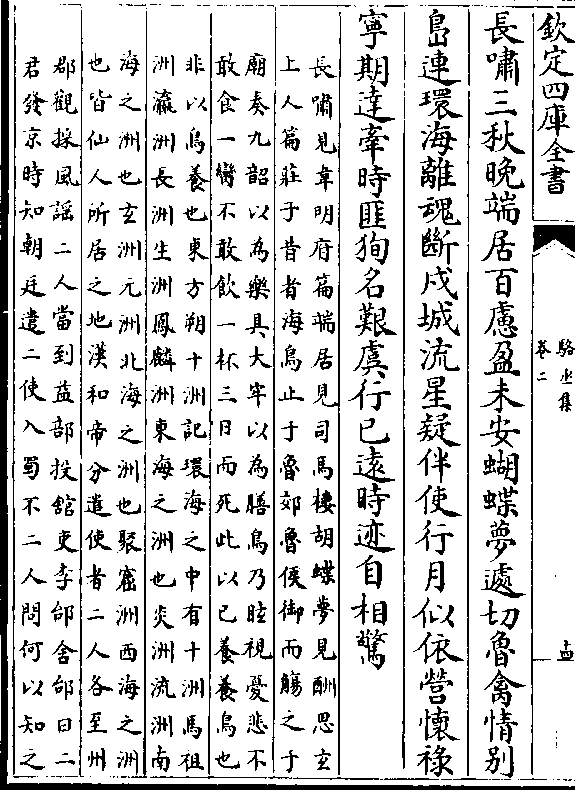 欽定四庫全書
駱丞集
卷二
長嘯三秋晚端居百慮盈未安蝴蝶夢遽切魯禽情别
島連環海離魂斷戍城流星疑伴使行月似依營懷祿
寧期達牽時匪狥名艱虞行已遠時迹自相驚
長嘯見韋明府篇端居見司馬樓胡蝶夢見酬思玄
上人篇莊子昔者海鳥止于魯郊魯侯御而觴之于
廟奏九韶以為樂具大牢以為膳鳥乃眩視憂悲不
敢食一臠不敢飲一杯三日而死此以已養養鳥也
非以鳥養也東方朔十洲記環海之中有十洲馬祖
洲瀛洲長洲生洲鳳麟洲東海之洲也炎洲流洲南
海之洲也玄洲元洲北海之洲也聚窟洲西海之洲
也皆仙人所居之地漢和帝分遣使者二人各至州
郡觀採風謡二人當到益部投舘吏李郃舍郃曰二
君發京時知朝廷遣二使入蜀不二人問何以知之